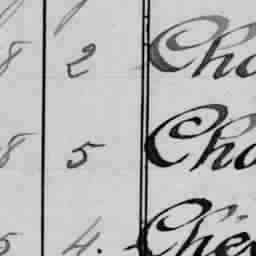 8 2 Cha
8 5 Cha
5 4. Ches